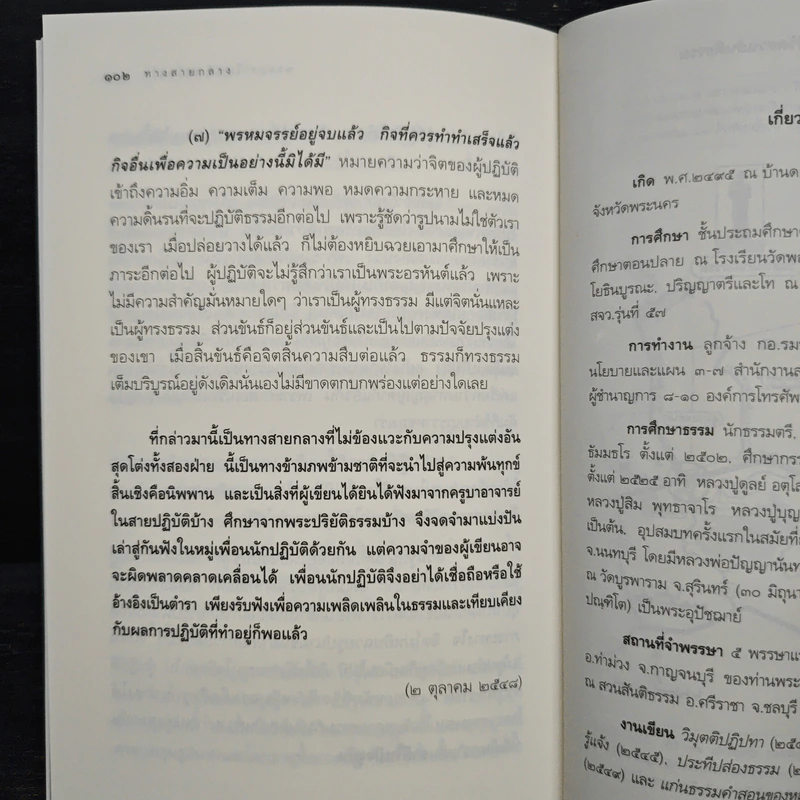 ๑๐๒ ทางสายกลาง
(๗) "พรหมจรรย์อยู่จบแล้ว กิจที่ควรทำทำเสร็จแล้ว
กิจอื่นเพื่อความเป็นอย่างนี้มิได้มี" หมายความว่าจิตของผู้ปฏิบัติ
เข้าถึงความอิ่ม ความเต็ม ความพอ หมดความกระหาย และหมด
ความดิ้นรนที่จะปฏิบัติธรรมอีกต่อไป เพราะรู้ชัดว่ารูปนามไม่ใช่ตัวเรา
ของเรา เมื่อปล่อยวางได้แล้ว ก็ไม่ต้องหยิบฉวยเอามาศึกษาให้เป็น
ภาระอีกต่อไป ผู้ปฏิบัติจะไม่รู้สึกว่าเราเป็นพระอรหันต์แล้ว เพราะ
ไม่มีความสำคัญมั่นหมายใดๆ ว่าเราเป็นผู้ทรงธรรม มีแต่จิตนั่นแหละ
เป็นผู้ทรงธรรม ส่วนขันธ์ก็อยู่ส่วนขันธ์และเป็นไปตามปัจจัยปรุงแต่ง
ของเขา เมื่อสิ้นขันธ์คือจิตสิ้นความสืบต่อแล้ว ธรรมก็ทรงธรรม
เต็มบริบูรณ์อยู่ดังเดิมนั่นเองไม่มีขาดตกบกพร่องแต่อย่างใดเลย
ที่กล่าวมานี้เป็นทางสายกลางที่ไม่ข้องแวะกับความปรุงแต่งอัน
สุดโต่งทั้งสองฝ่าย นี้เป็นทางข้ามภพข้ามชาติที่จะนำไปสู่ความพ้นทุกข์
สิ้นเชิงคือนิพพาน และเป็นสิ่งที่ผู้เขียนได้ยินได้ฟังมาจากครูบาอาจารย์
ในสายปฏิบัติบ้าง ศึกษาจากพระปริยัติธรรมบ้าง จึงจดจำมาแบ่งปัน
เล่าสู่กันฟังในหมู่เพื่อนนักปฏิบัติด้วยกัน แต่ความจำของผู้เขียนอาจ
จะผิดพลาดคลาดเคลื่อนได้ เพื่อนนักปฏิบัติจึงอย่าได้เชื่อถือหรือใช้
อ้างอิงเป็นตำรา เพียงรับฟังเพื่อความเพลิดเพลินในธรรมและเทียบเคียง
กับผลการปฏิบัติที่ทำอยู่ก็พอแล้ว
(๒ ตุลาคม ๒๕๔๘)
เกี่ยว
เกิด พ.ศ.๒๔๙๕ ณ บ้านด
จังหวัดพระนคร
การศึกษา ชั้นประถมศึกษา
ศึกษาตอนปลาย ณ โรงเรียนวัดพล
โยธินบูรณะ. ปริญญาตรีและโท ณ
สจว.รุ่นที่ ๕๗
การทำงาน ลูกจ้าง กอ.รม
นโยบายและแผน ๓-๗ สำนักงานส
ผู้ชำนาญการ ๘-๑๐ องค์การโทรศัพ
การศึกษาธรรม นักธรรมตรี.
ธัมมธโร ตั้งแต่ ๒๕๐๒. ศึกษากรร
ตั้งแต่ ๒๕๒๕ อาทิ หลวงปู่ดูลย์ อตุโล
หลวงปู่สิม พุทธาจาโร หลวงปู่บุญ
เป็นต้น. อุปสมบทครั้งแรกในสมัยที่
จ.นนทบุรี โดยมีหลวงพ่อปัญญานันท
ณ วัดบูรพาราม จ.สุรินทร์ (๓๐ มิถุนา
ปณฺฑิโต) เป็นพระอุปัชฌาย์
สถานที่จำพรรษา ๕ พรรษาแ
อ.ท่าม่วง จ.กาญจนบุรี ของท่านพระ
ณ สวนสันติธรรม อ.ศรีราชา จ.ชลบุรี
งานเขียน วิมุตติปฏิปทา (๒๕๔
รู้แจ้ง (๒๕๔๕). ประทีปส่องธรรม (๒
(๒๕๔๙) และ แก่นธรรมคำสอนของห